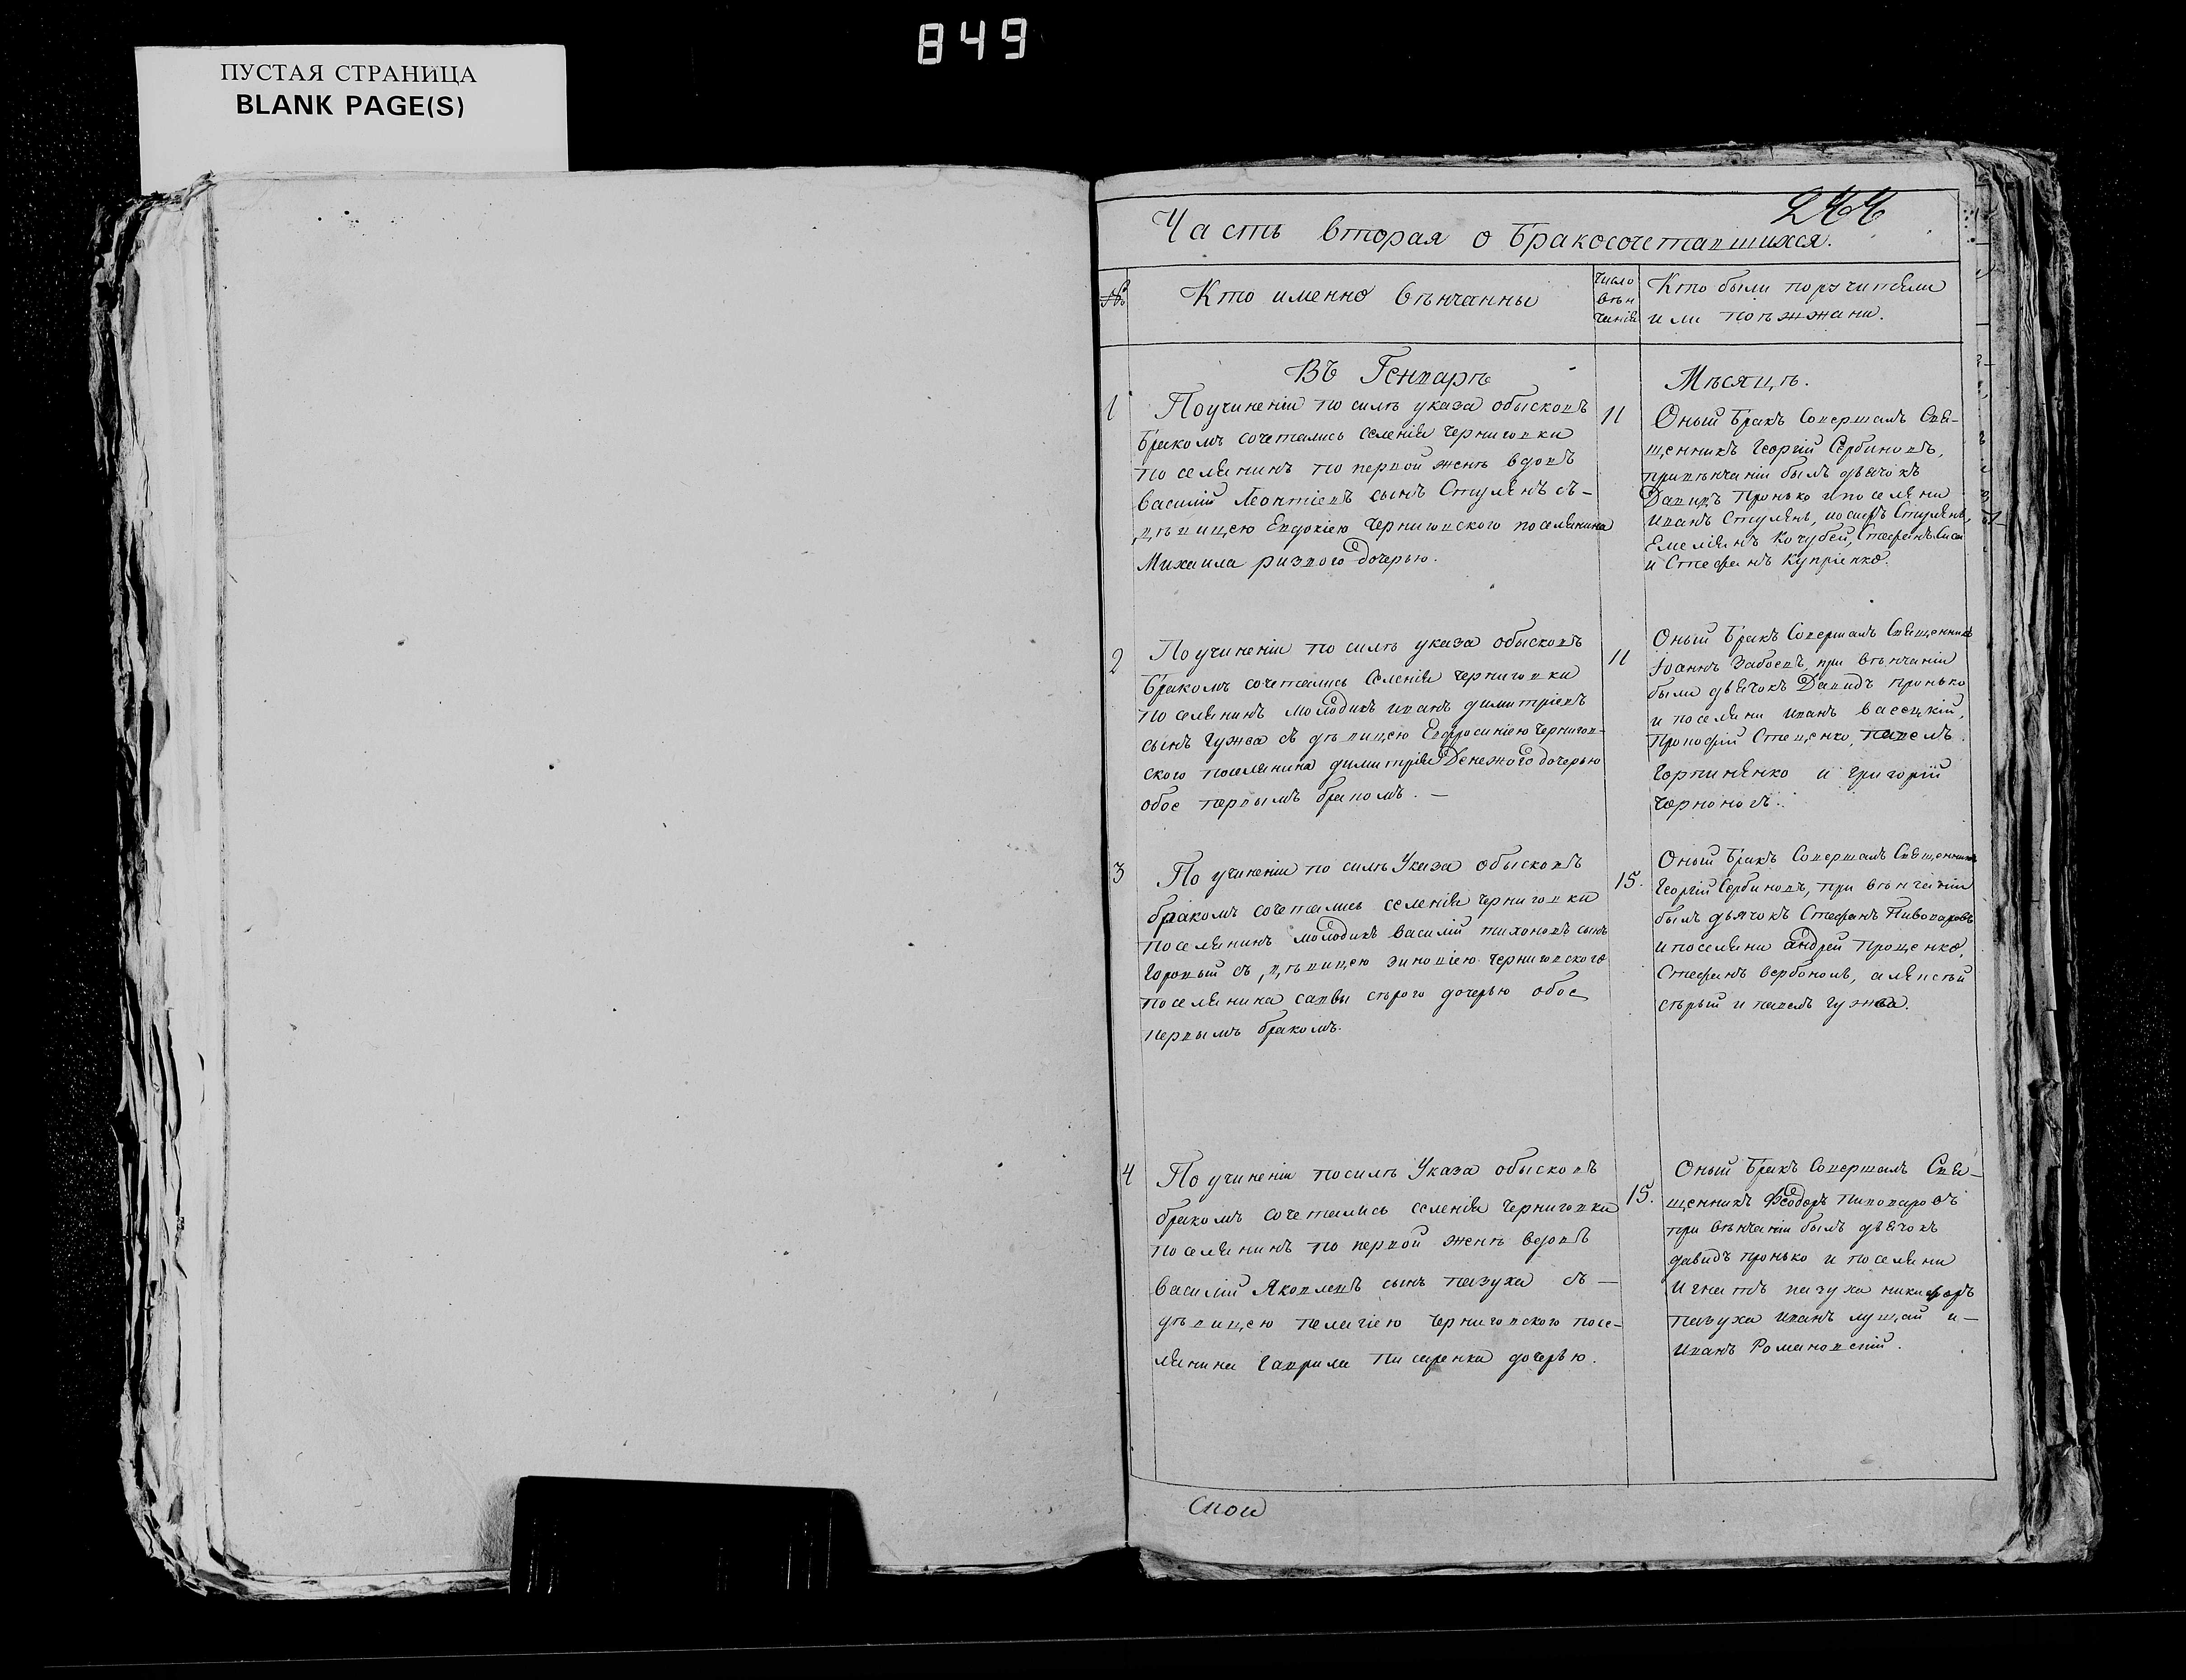 849
ПУСТАЯ СТРАНИЦА
BLANK PAGE(S)
244
Часть вторая о бракосочетавшихся.
№
Кто именно вѣнчанны
Число
вѣн
чанія
Кто были поручители
или поѣзжани.
Въ Генварѣ
Мѣсяцѣ.
1
По учиненіи по силѣ указа обысковъ
бракомъ сочетались селенія Черниговки
поселянинъ по первой женѣ вдовъ
Василій Леонтіевъ сынъ Ступенъ съ –
дѣвицею Евдокіею Черниговского поселянина
Михаила Ризвого дочерью.
11
Оный бракъ совершалъ Свя-
щенникъ Георгій Сербиновъ,
при вѣнчаніи былъ дьячокъ
Давидъ Пронько и поселяни
Иванъ Ступенъ, Іосифъ Ступенъ,
Емеліянъ Кочубей, Стефанъ
и Стефанъ Купріенко.
2
По учиненіи по силѣ указа обысковъ
бракомъ сочетались селенія Черниговки
поселянинъ молодикъ Иванъ Димитріевъ
сынъ Гужва съ дѣвицею Евфросиніею Чернигов-
ского поселянина Димитрія Денежного дочерью
обое первымъ бракомъ. –
11
Оный бракъ совершалъ Священникъ
Іоаннъ Забоевъ, при вѣнчаніи
были дьячокъ Давидъ Пронько
и поселяни Иванъ Васецкій,
Прокофій Стеценко, Павелъ
Горпиненко и Григорій
Чорноногъ.
3
По учиненіи по силѣ Указа обысковъ
бракомъ сочетались селенія Черниговки
поселянинъ молодикъ Василій Тихоновъ сынъ
Горовый съ дѣвицею Зиновіею Черниговского
поселянина Саввы Сѣрого дочерью обое
первымъ бракомъ.
15.
Оный бракъ совершалъ Священникъ
Георгій Сербиновъ, при вѣнчаніи
былъ дьячокъ Стефанъ Пивоваровъ
и поселяни Андрей Проценко,
Стефанъ Верболовъ, Алексѣй
Сѣрый и Павелъ Гужва.
4
По учиненіи по силѣ Указа обысковъ
бракомъ сочетались селенія Черниговки
поселянинъ по первой женѣ вдовъ
Василій Яковлевъ сынъ Пазуха съ –
дѣвицею Пелагіею Черниговского посе-
лянина Гаврила Писаренка дочерью.
15.
Оный бракъ совершалъ Свя-
щенникъ Феодоръ Пивоваровъ
при вѣнчаніи былъ дьячокъ
Давидъ Пронько и поселяни
Игнатъ Пазуха Никифоръ
Пазуха Иванъ Лущай и –
Иванъ Романовскій.